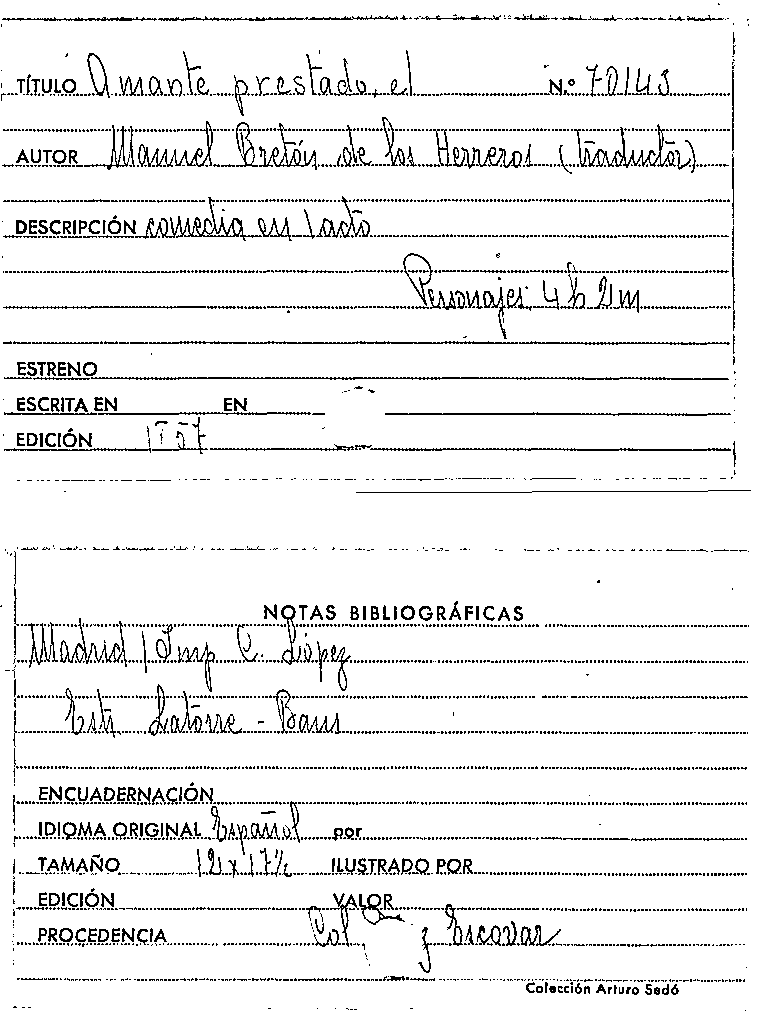 TÍTULO Amante prestado, el N.º 70143
AUTOR Manuel Bretón de los Herreros (traductor)
DESCRIPCIÓN comedia en 1 acto
Personajes 4 h 2 m
ESTRENO
ESCRITA EN EN
EDICIÓN
NOTAS BIBLIOGRÁFICAS
Madrid / Imp C. López
Estr. Latorre - Baus
ENCUADERNACIÓN
IDIOMA ORIGINAL Español por
TAMAÑO 12 x 17½ ILUSTRADO POR
EDICIÓN VALOR
PROCEDENCIA Col Escovar
Colección Arturo Sedó